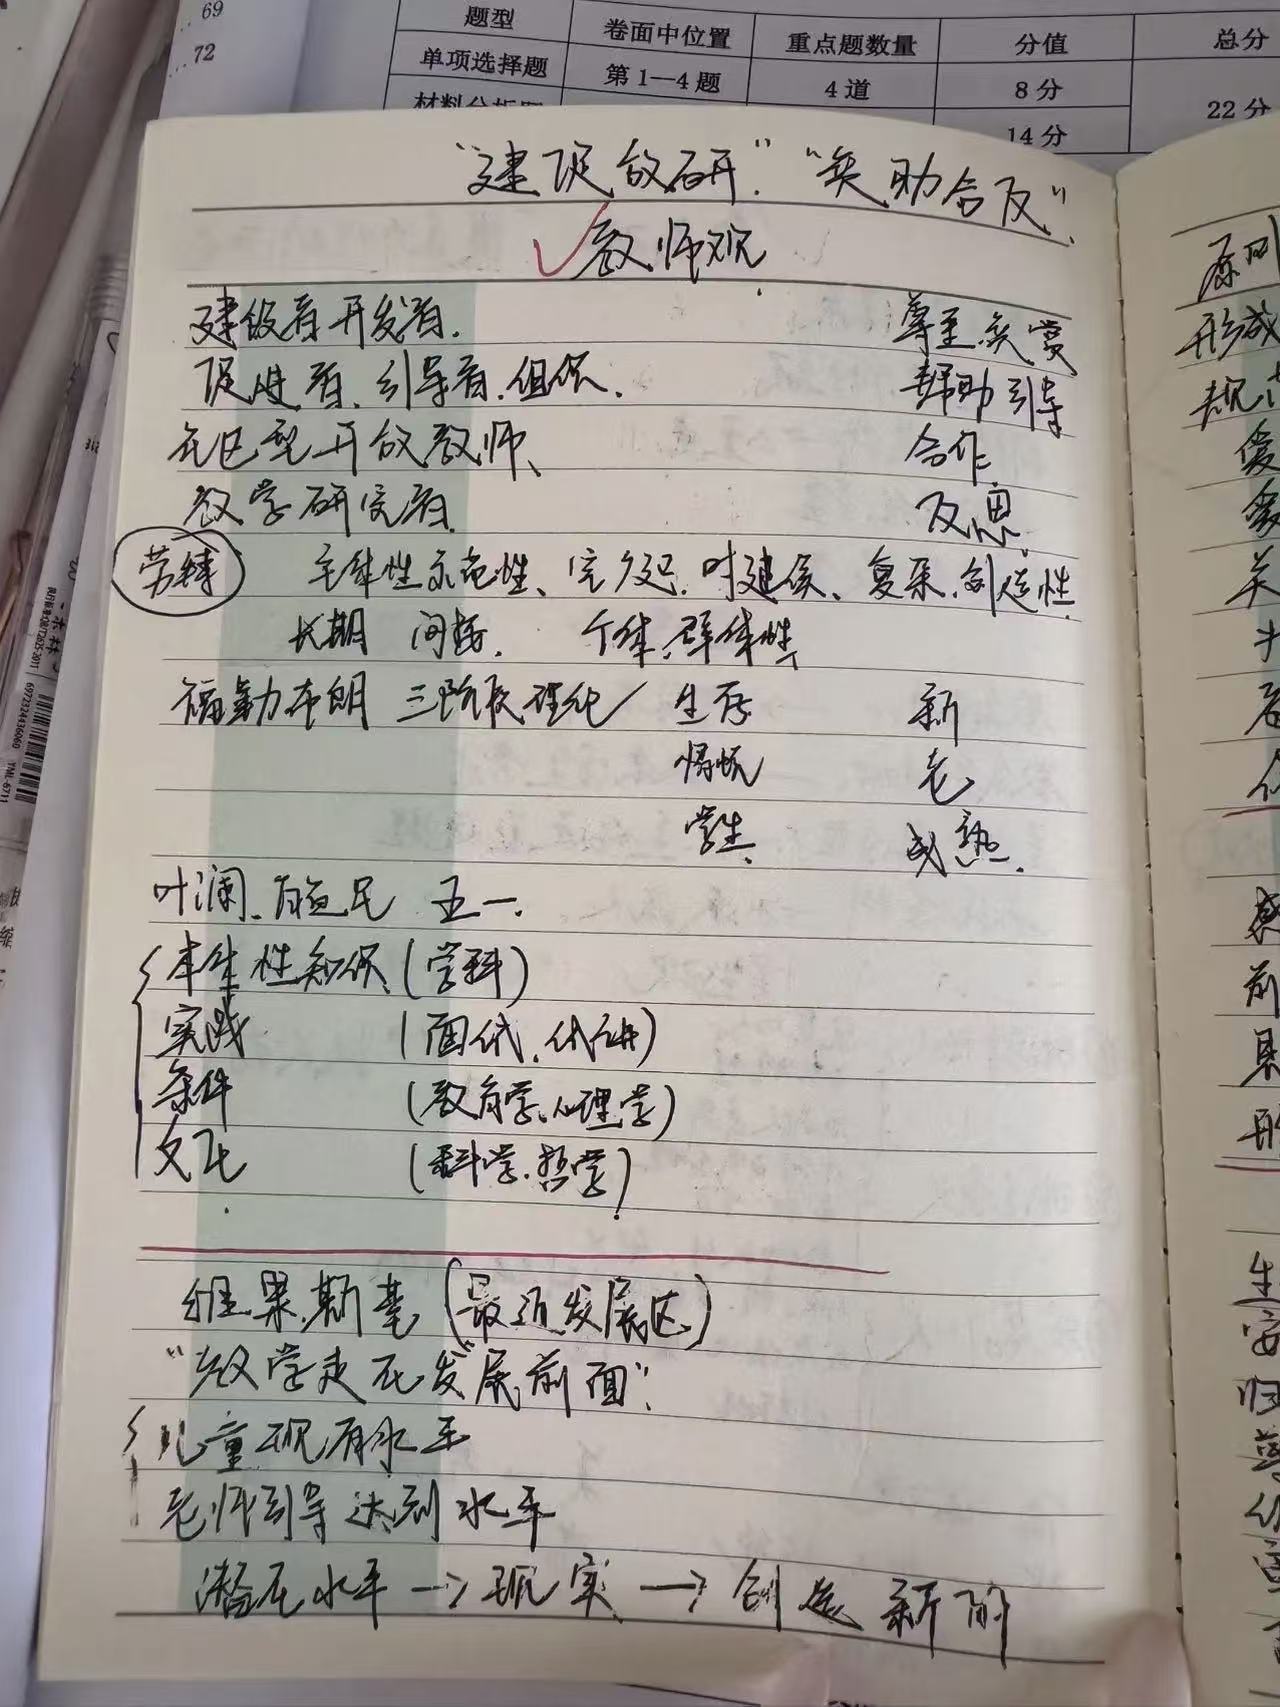 69
72
题型 卷面中位置 重点题数量 分值 总分
单项选择题 第1—4题 4道 8分 22分
材料分析题 14分
"建促放研" "奂助合反"
教师观
建设者开发者. 尊重 赏
促进者、引导者、组织. 帮助引导
社区型开放教师、 合作
教学研究者. 反思.
劳特 主体性示范性、 复杂、创造性
长期 间接. 个体、群体性
福勒布朗 三阶段理论 生存 新
情境 老
学生 成熟.
叶澜、 五一.
本体性知识(学科)
实践 (面
条件 (教育学、心理学)
文化 (科学、哲学)
维果斯基 (最近发展区)
"教学走在发展前面".
儿童现有水平
老师引导达到水平
潜在水平→现实→创造新的
原则
形成
规
爱
爱
关
感
前
生
安
归
木林
6972324436060 YML-6711